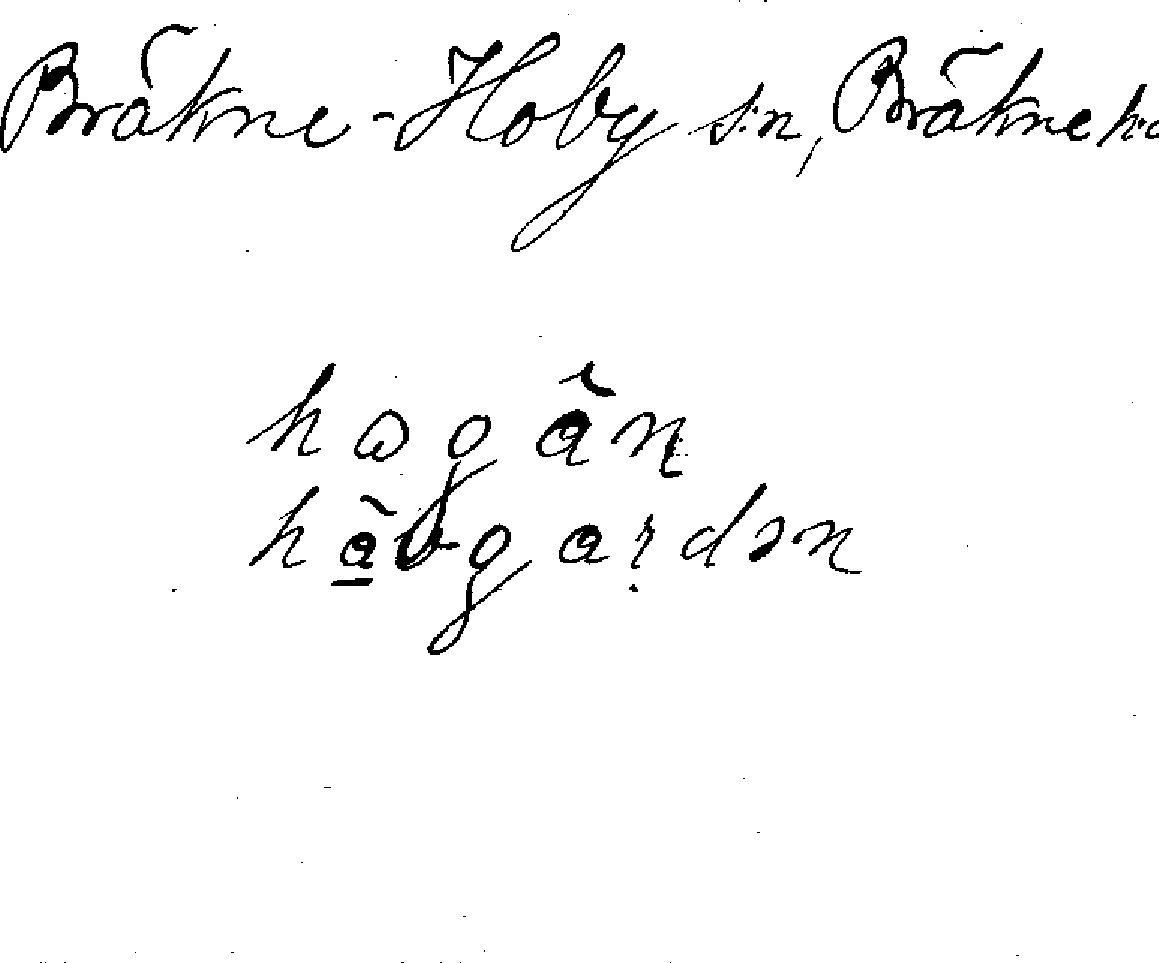 Bräkne-Hoby s:n, Bräkne h:d
hagån
håvgardən